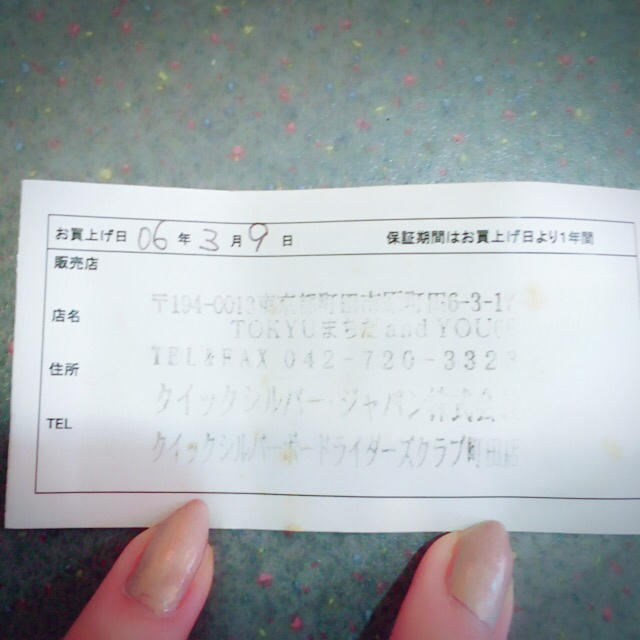 お買上げ日 06 年 3 月 9 日 保証期間はお買上げ日より1年間
販売店
店名
住所
TEL
〒194-0013 東京都町田市原町田6-3-1
TOKYUまちだ and YOU
TEL&FAX 042-720-332
クイックシルバー・ジャパン株式会
クイックシルバーボードライダーズクラブ町田店